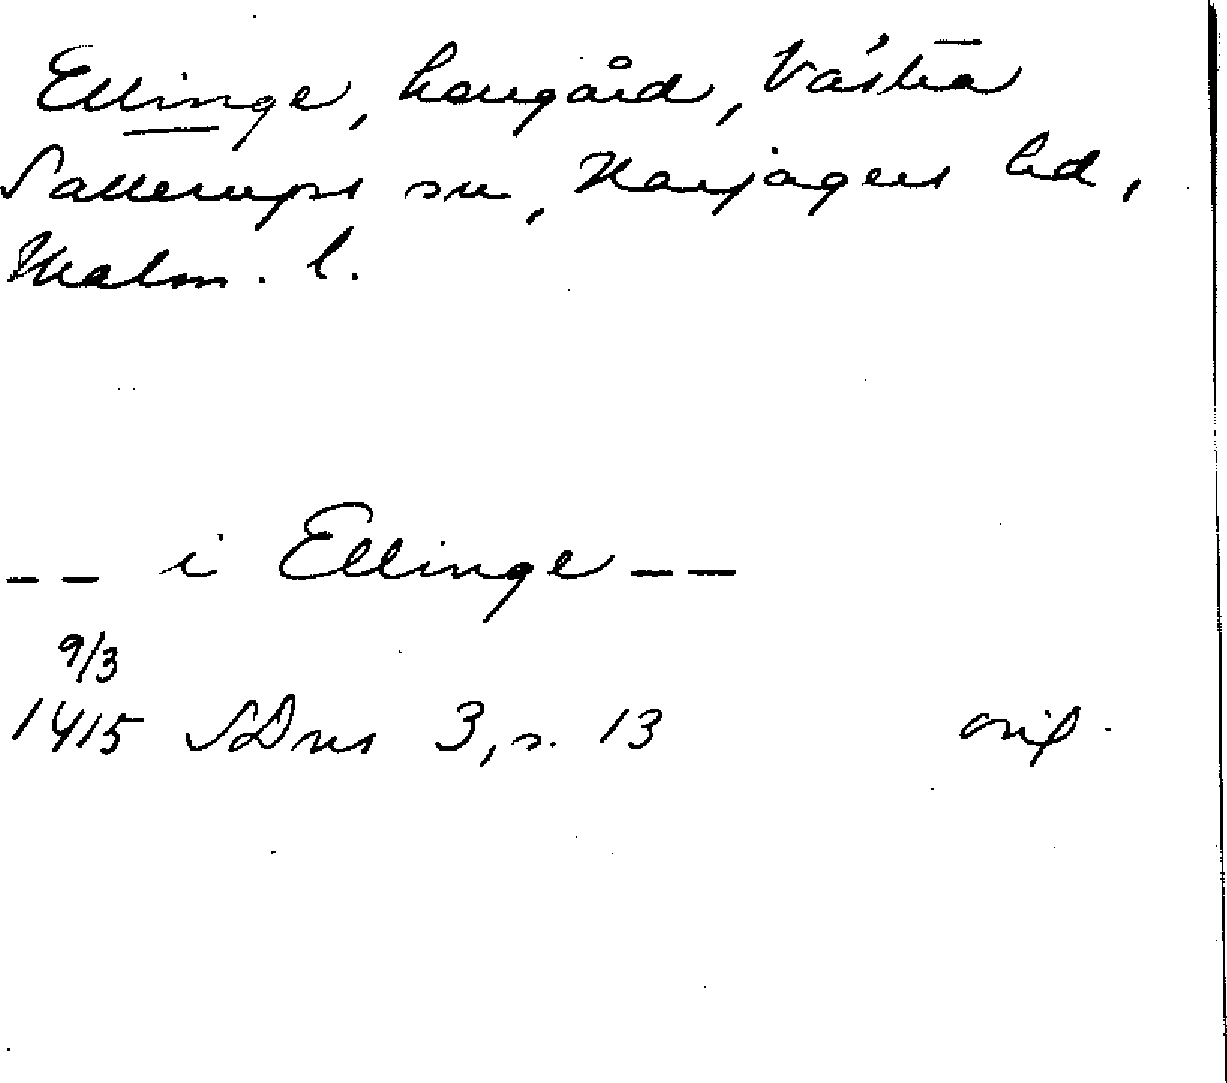 Ellinge, herrgård, Västra
Sallerups sn, Harjagers hd,
Malm. l.
-- i Ellinge --
9/3
1415 SDns 3, s. 13 orig.